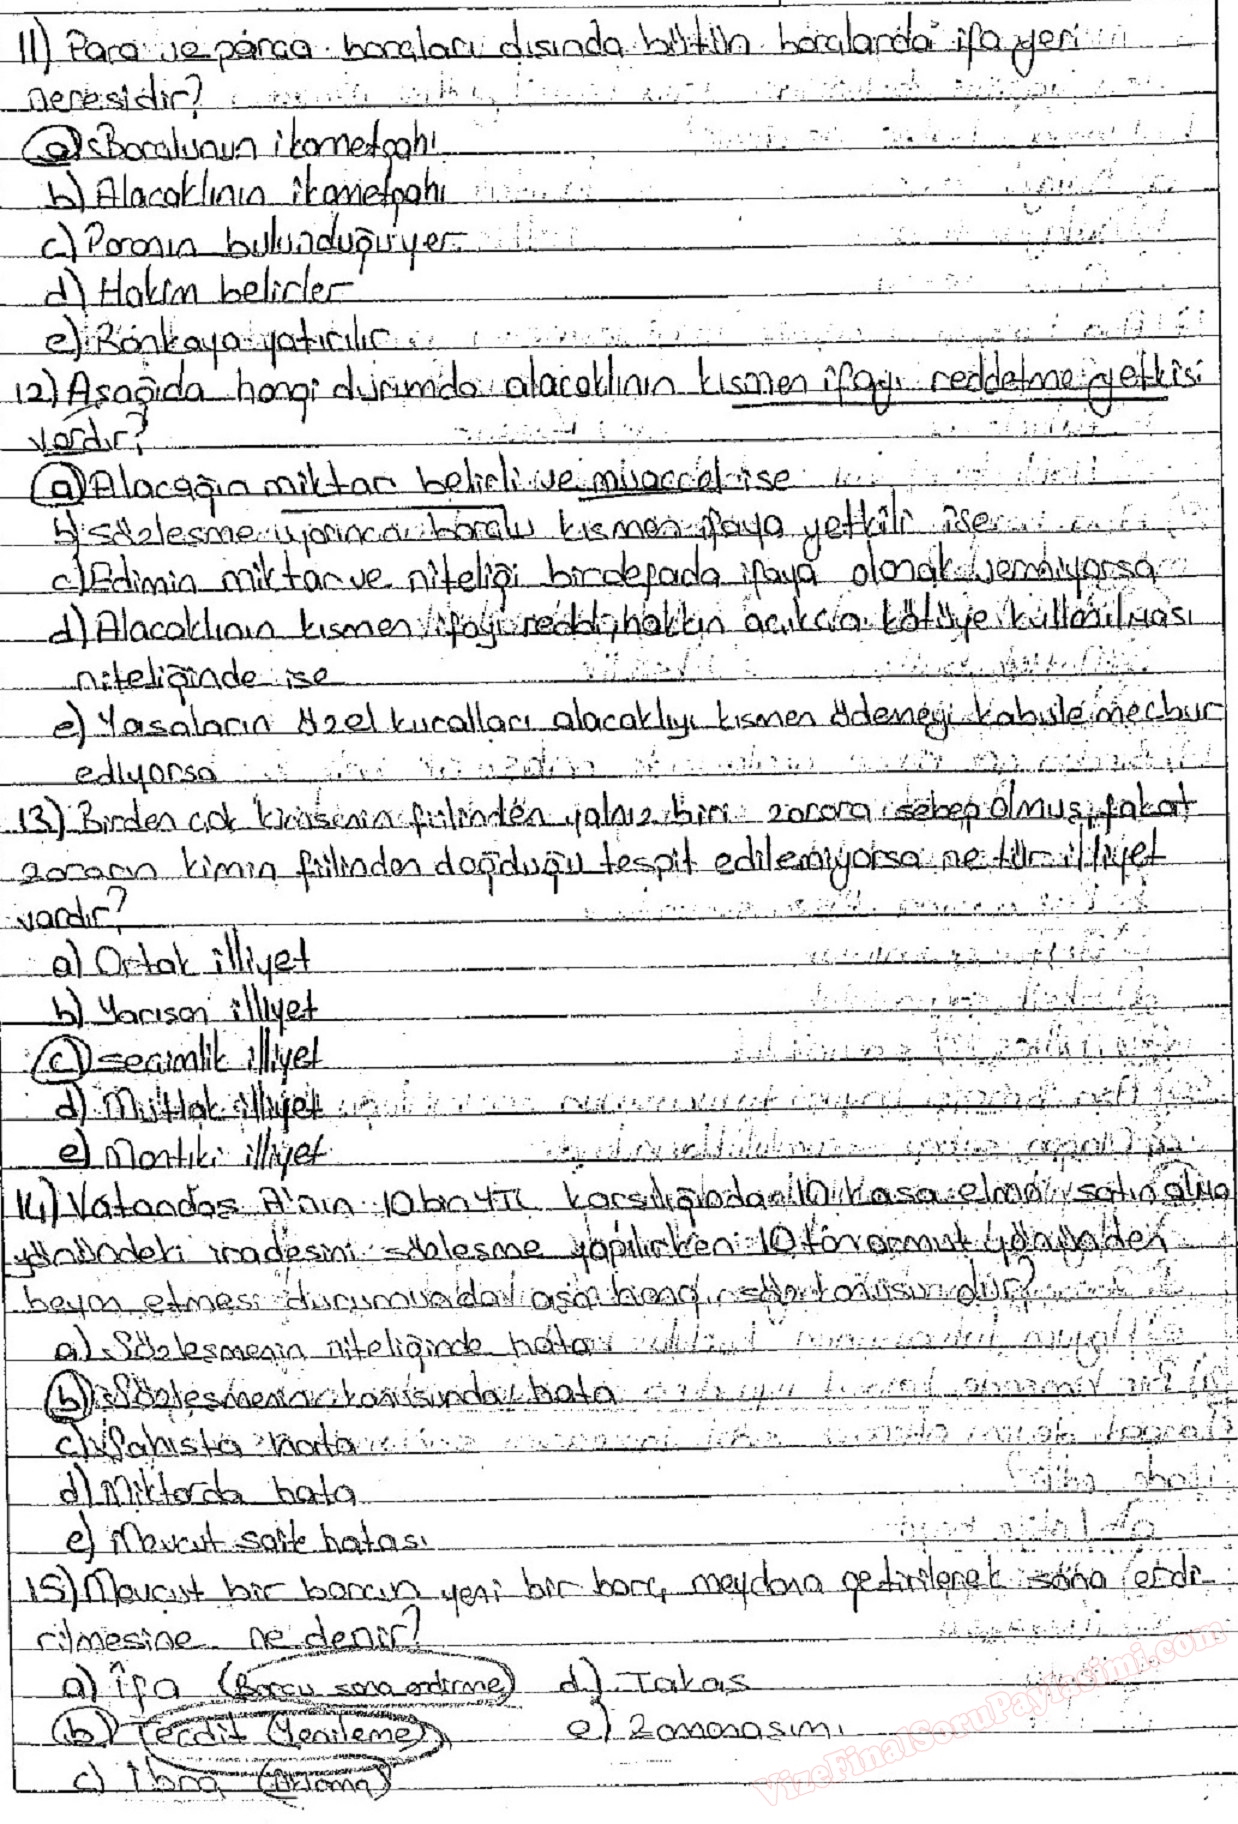 11) Para ve parça borçları dışında bütün borçlarda ifa yeri
neresidir?
a) Borçlunun ikametgahı
b) Alacaklının ikametgahı
c) Paranın bulunduğu yer
d) Hakim belirler
e) Bankaya yatırılır
12) Aşağıda hangi durumda alacaklının kısmen ifayı reddetme yetkisi
vardır?
a) Alacağın miktarı belirli ve muaccel ise
b) Sözleşme uyarınca borçlu kısmen ifaya yetkili ise
c) Edimin miktar ve niteliği bir defada ifaya olanak vermiyorsa
d) Alacaklının kısmen ifayı reddi, hakkın açıkça kötüye kullanılması
niteliğinde ise
e) Yasaların özel kuralları alacaklıyı kısmen ödemeyi kabule mecbur
ediyorsa
13) Birden çok kimsenin fiilinden yalnız biri zarara sebep olmuş, fakat
zararın kimin fiilinden doğduğu tespit edilemiyorsa ne tür illiyet
vardır?
a) Ortak illiyet
b) Yarışan illiyet
c) seçimlik illiyet
d) Mutlak illiyet
e) Mantıki illiyet
14) Vatandaş A'nın 10 bin YTL karşılığında 10 kasa elma satın alma
yönündeki iradesini sözleşme yapılırken 10 ton armut yönünden
beyan etmesi durumunda aşa. hangi söz konusudur?
a) Sözleşmenin niteliğinde hata
b) Sözleşmenin konusunda hata
c) Şahısta hata
d) Miktarda hata
e) Mevcut saik hatası
15) Mevcut bir borcun yeni bir borç meydana getirilerek sona erdi-
rilmesine ne denir?
a) İfa (Borcu sona erdirme) d) Takas
b) Tecdit (Yenileme) e) Zamanaşımı
c) İbra (Aklama)
VizeFinalSoruPaylasimi.com